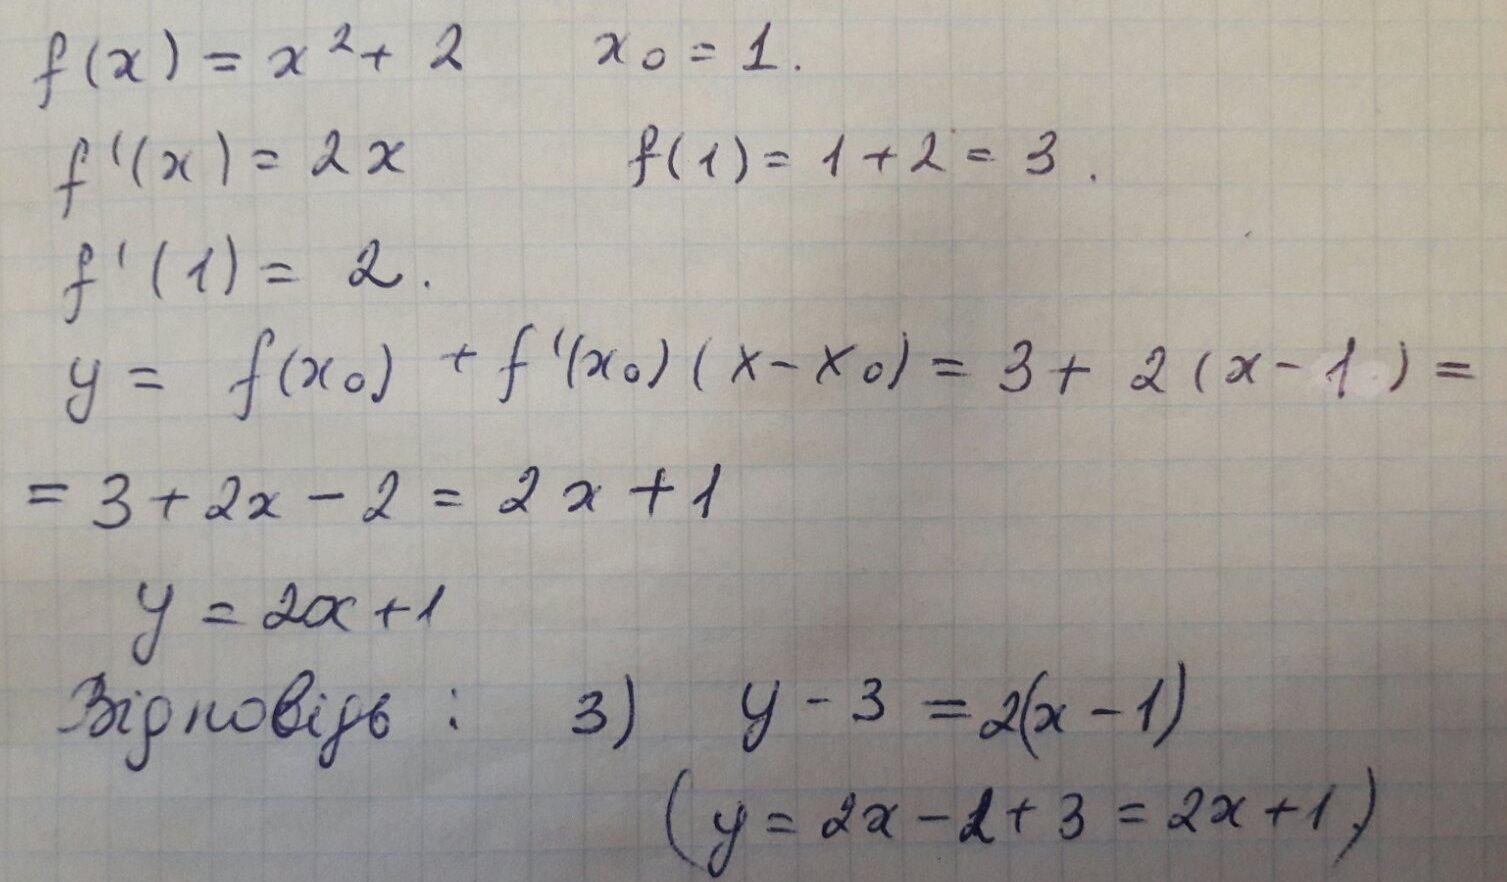 f(x) = x² + 2 x₀ = 1.
f'(x) = 2x f(1) = 1 + 2 = 3.
f'(1) = 2.
y = f(x₀) + f'(x₀)(x - x₀) = 3 + 2(x - 1) =
= 3 + 2x - 2 = 2x + 1
y = 2x + 1
Відповідь: 3) y - 3 = 2(x - 1)
(y = 2x - 2 + 3 = 2x + 1)